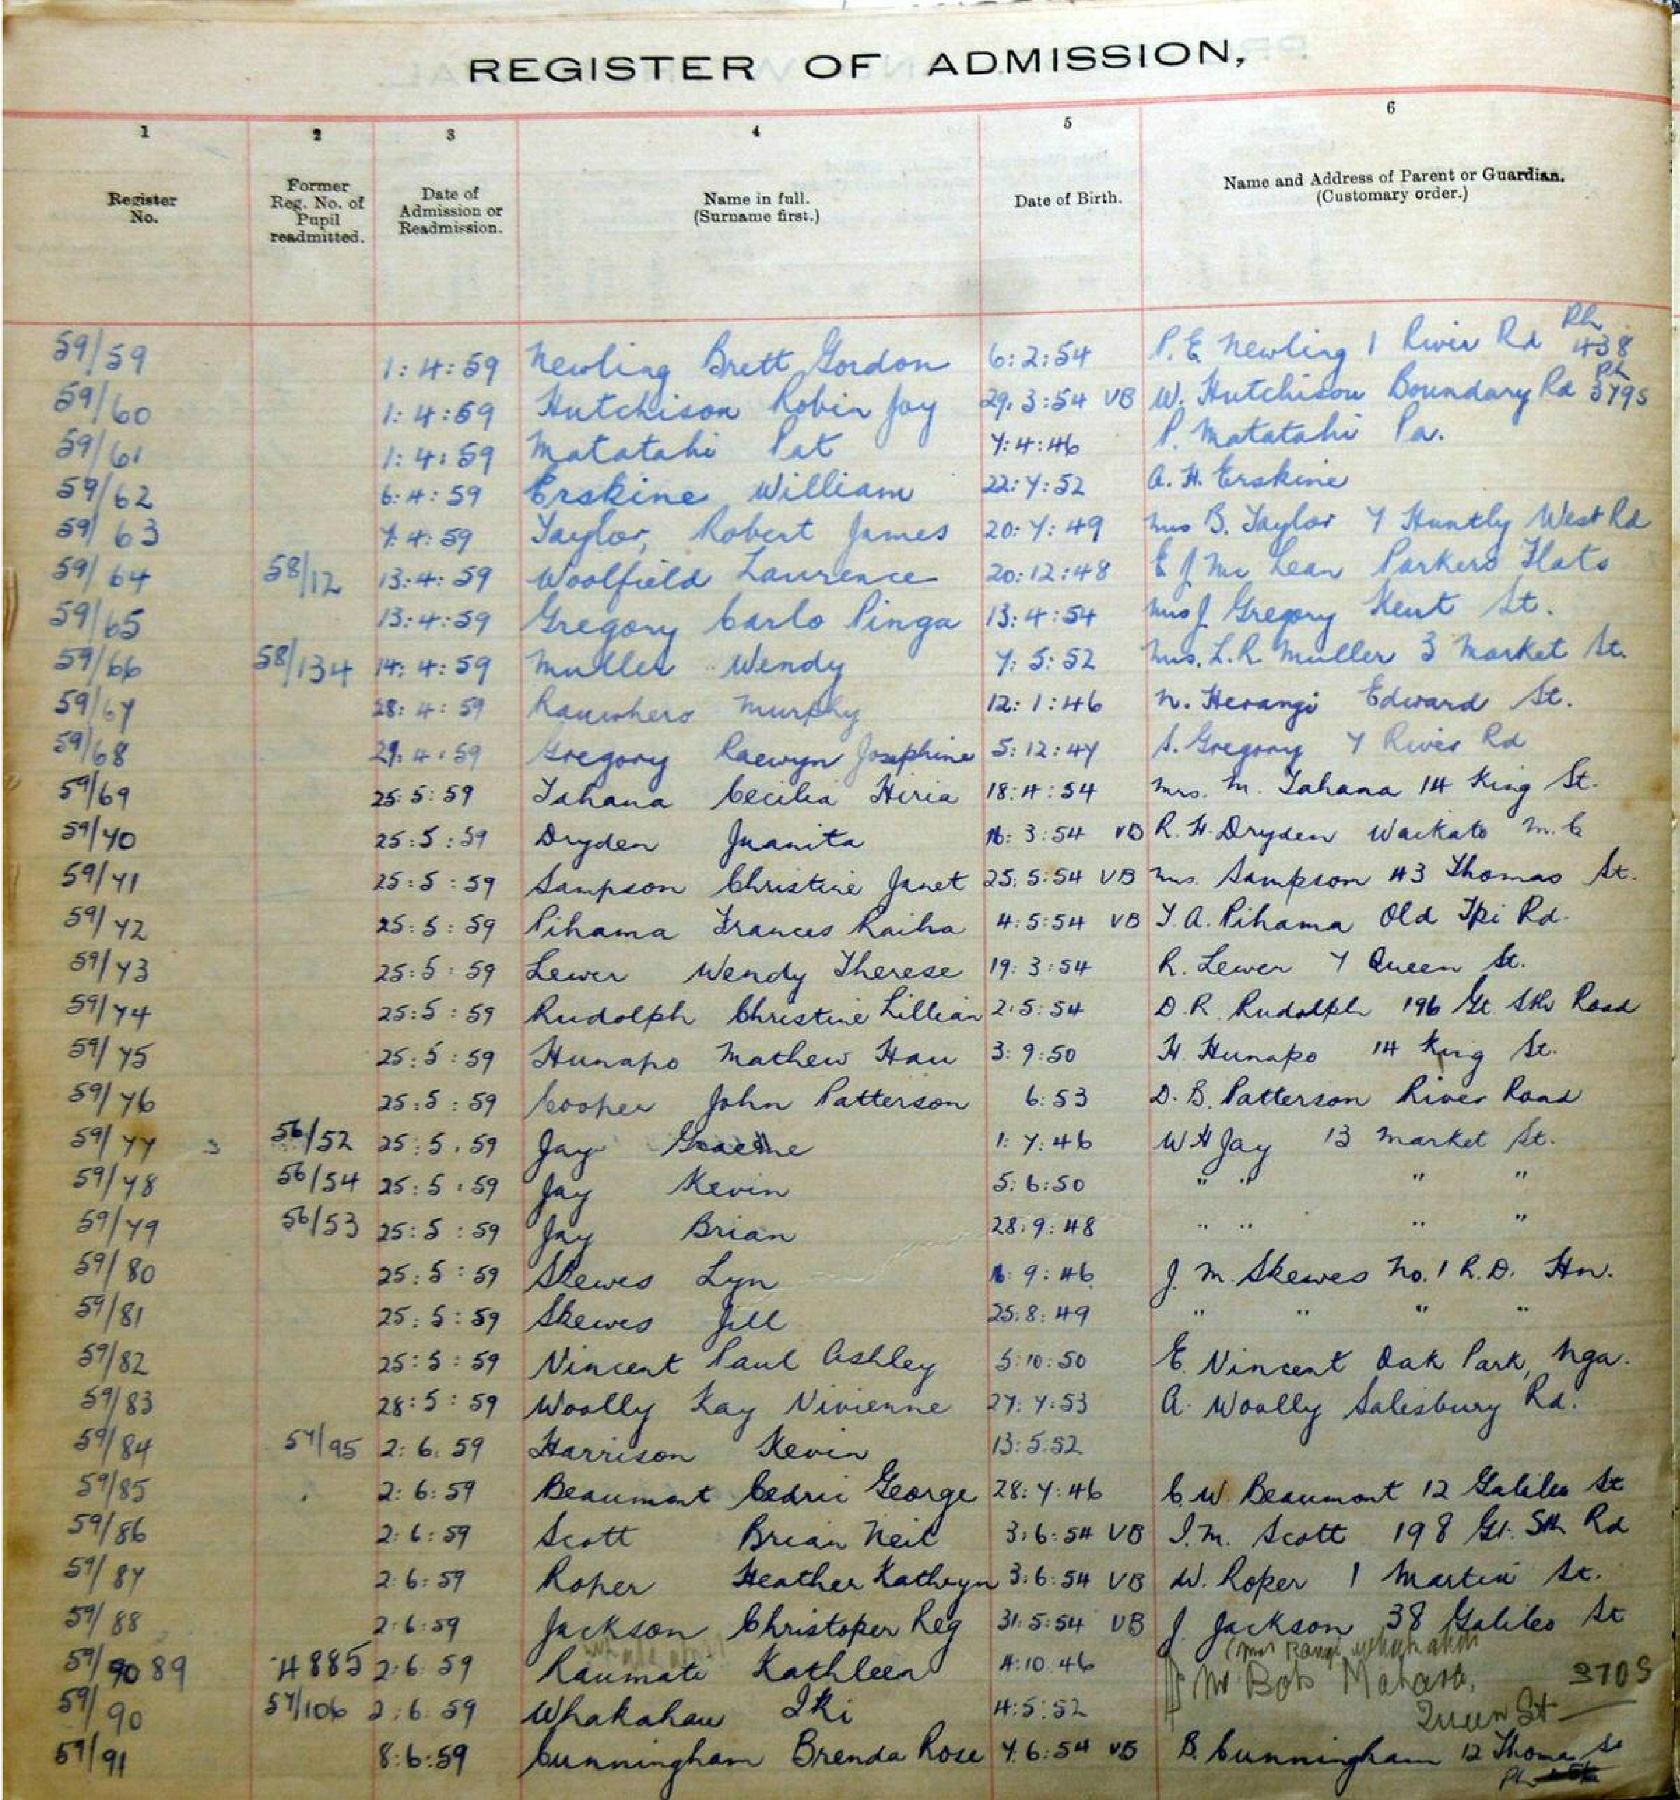 REGISTER OF ADMISSION,
1 2 3 4 5 6
Register No. Former Reg. No. of Pupil readmitted. Date of Admission or Readmission. Name in full. (Surname first.) Date of Birth. Name and Address of Parent or Guardian. (Customary order.)
Ph
59/59 1:4:59 Newling Brett Gordon 6:2:54 P. E. Newling 1 River Rd 438
Ph
59/60 1:4:59 Hutchison Robin Joy 29.3:54 VB W. Hutchison Boundary Rd 379S
59/61 1:4:59 Matatahi Pat 7:4:46 P. Matatahi Pa.
59/62 6:4:59 Erskine William 22:7:52 A. H. Erskine
59/63 7:4:59 Taylor, Robert James 20:7:49 Mrs B. Taylor 7 Huntly West Rd
59/64 58/12 13:4:59 Woolfield Laurence 20:12:48 E J Mc Lean Parkers Flats
59/65 13:4:59 Gregory Carlo Pinga 13:4:54 Mrs J Gregory Kent St.
59/66 58/134 14:4:59 Muller Wendy 7:5:52 Mrs. L.R. Muller 3 Market St.
59/67 28:4:59 Rauwhero Murphy 12:1:46 N. Herangi Edward St.
59/68 29.4.59 Gregory Raewyn Josephine 5:12:47 S. Gregory 7 River Rd
59/69 25:5:59 Tahana Cecilia Hiria 18:4:54 Mrs. M. Tahana 14 King St.
59/70 25:5:59 Dryden Juanita 16:3:54 VB R. H. Dryden Waikato M.C
59/71 25:5:59 Sampson Christine Janet 25.5:54 VB Mrs. Sampson 43 Thomas St.
59/72 25:5:59 Pihama Frances Raiha 4:5:54 VB T. A. Pihama Old Tpi Rd.
59/73 25:5:59 Lewer Wendy Therese 19:3:54 R. Lewer 7 Queen St.
59/74 25:5:59 Rudolph Christine Lillian 2:5:54 D. R. Rudolph 196 Gt. Sth Road
59/75 25:5:59 Hunapo Mathew Hau 3:9:50 H. Hunapo 14 King St.
59/76 25:5:59 Cooper John Patterson 6:53 D. B. Patterson River Road
59/77 56/52 25:5.59 Jay Graeme 1:7:46 W H Jay 13 Market St.
59/78 56/54 25:5:59 Jay Kevin 5:6:50 " " " "
59/79 56/53 25:5:59 Jay Brian 28.9:48 " " " "
59/80 25:5:59 Skewes Lyn 9:46 J. M. Skewes No. 1 R.D. Hn.
59/81 25:5:59 Skewes Jill 25.8:49 " " " "
59/82 25:5:59 Vincent Paul Ashley 5:10:50 E. Vincent Oak Park, Nga.
59/83 28:5:59 Woolly Kay Vivienne 27:7:53 A. Woolly Salisbury Rd.
59/84 57/95 2:6.59 Harrison Kevin 13:5.52
59/85 2:6:59 Beaumont Cedric George 28:7:46 C. W. Beaumont 12 Galileo St
59/86 2:6:59 Scott Brian Neil 3:6:54 VB I. M. Scott 198 Gt. Sth Rd
59/87 2:6:59 Roper Heather Kathryn 3:6:54 VB W. Roper 1 Martin St.
59/88 2:6:59 Jackson Christoper Reg 31:5:54 VB J. Jackson 38 Galileo St
59/90 89 4885 2:6 59 Raumati Kathleen 4:10.46 Mr Bob Mahara. 370S
59/90 57/106 2:6.59 Whakahau Iki 4:5:52 Queen St
59/91 8:6:59 Cunningham Brenda Rose 7.6:54 VB B. Cunningham 12 Thomas St
Ph